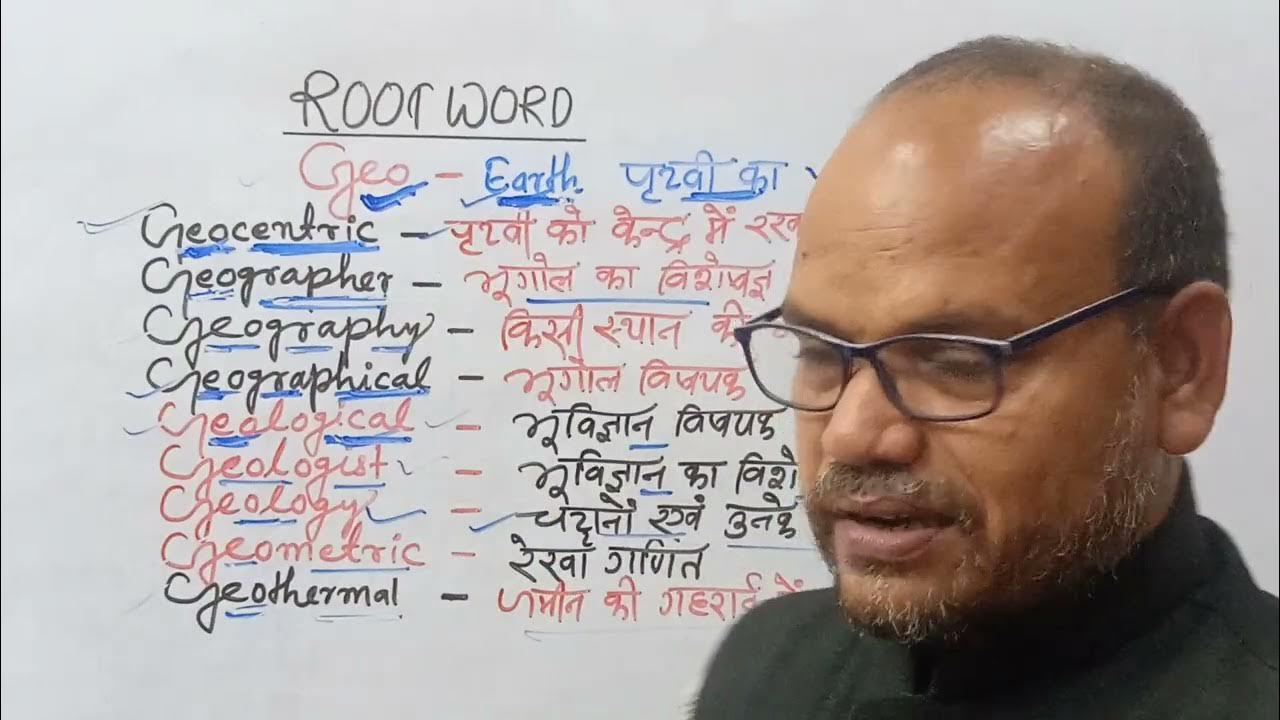 ROOT WORD
Geo - Earth पृथ्वी का
Geocentric - पृथ्वी को केन्द्र में
Geographer - भूगोल का विशेषज्ञ
Geography - किसी स्थान की
Geographical - भूगोल विषयक
Geological - भूविज्ञान विषयक
Geologist - भूविज्ञान का
Geology - चट्टानों एवं उनके
Geometric - रेखा गणित
Geothermal - जमीन की गहराई में